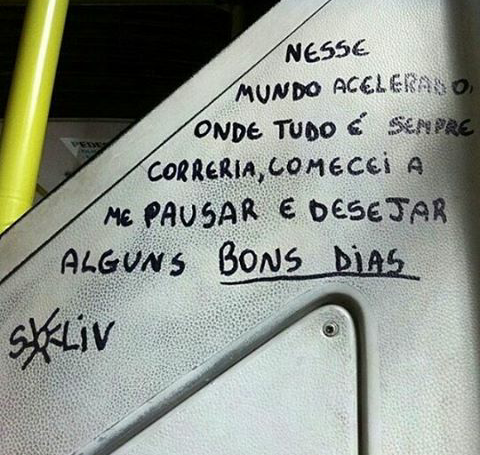 NESSE
MUNDO ACELERADO,
ONDE TUDO É SEMPRE
CORRERIA, COMECEI A
ME PAUSAR E DESEJAR
ALGUNS BONS DIAS